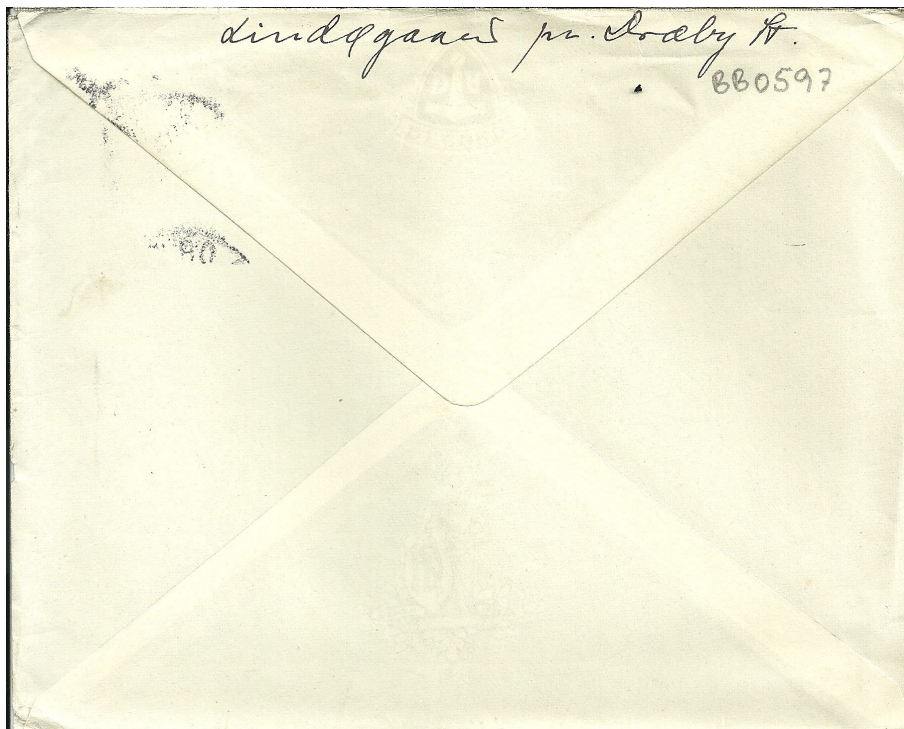 Lindøgaard pr. Dræby St.
BB0597